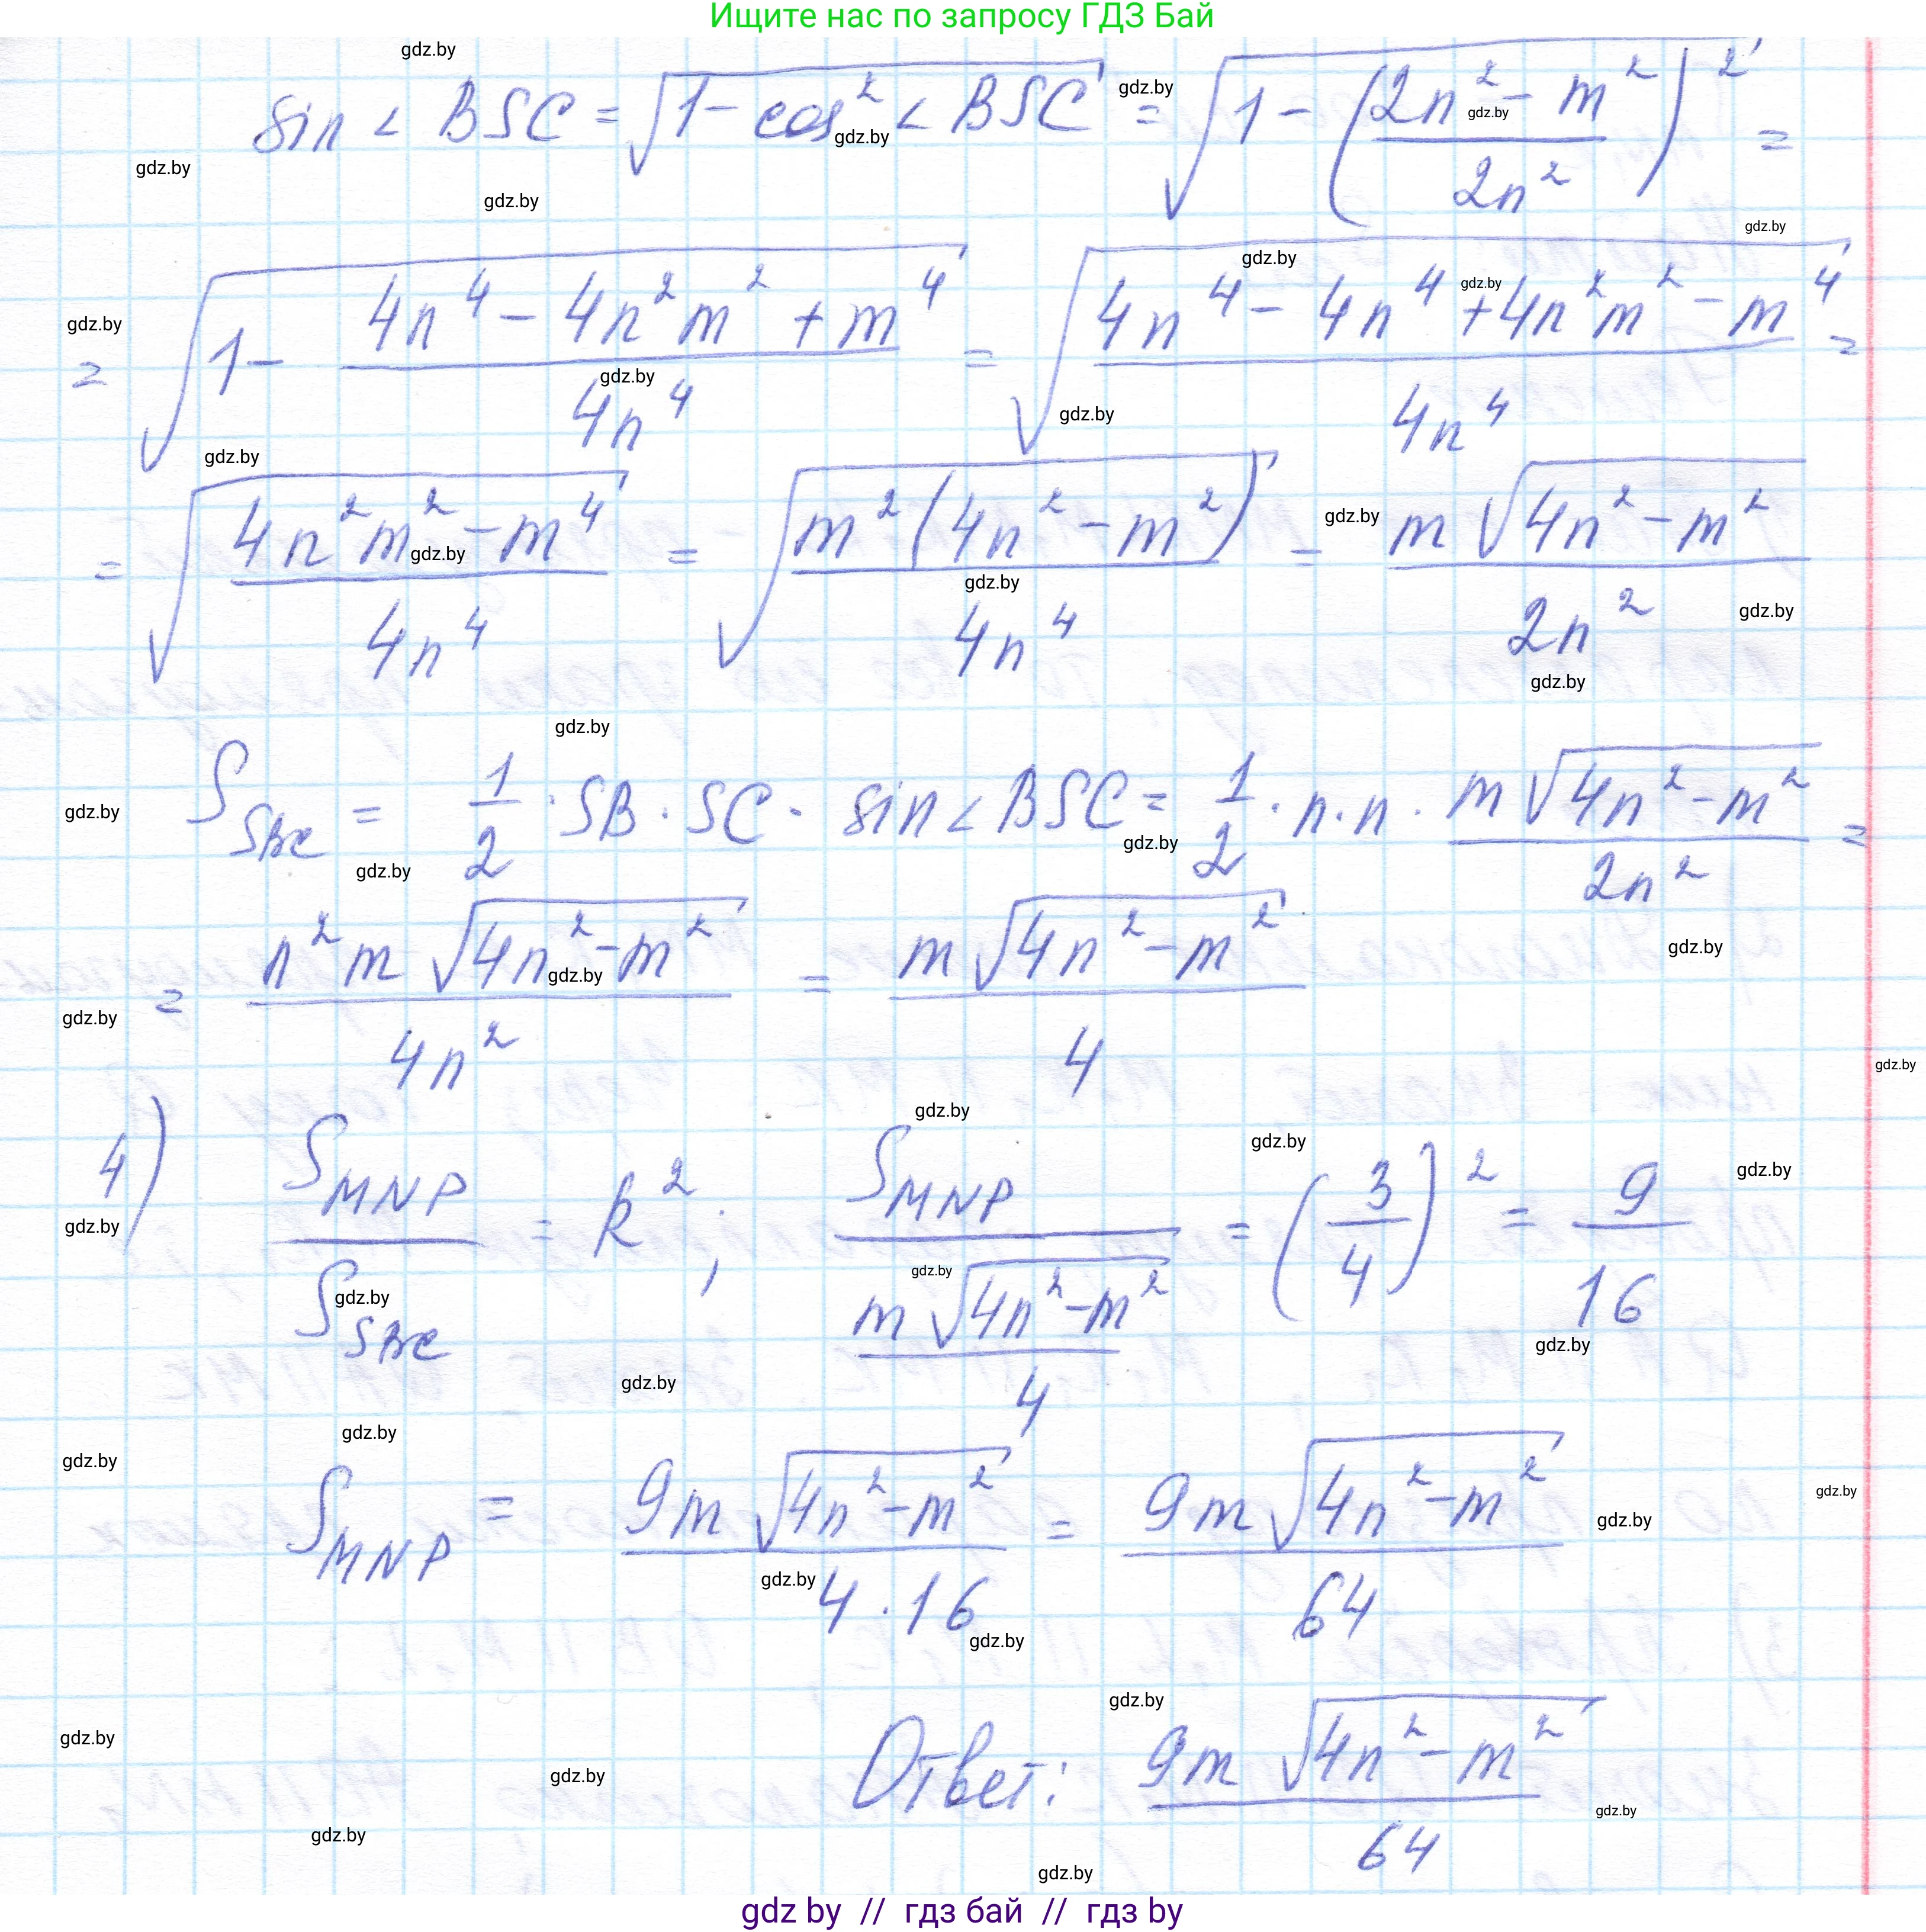 Ищите нас по запросу ГДЗ Бай
sin < BSC = √(1 - cos² < BSC) = √(1 - ((2n² - m²)/(2n²))²) =
= √(1 - (4n⁴ - 4n²m² + m⁴)/(4n⁴)) = √((4n⁴ - 4n⁴ + 4n²m² - m⁴)/(4n⁴)) =
= √((4n²m² - m⁴)/(4n⁴)) = √(m²(4n² - m²)/(4n⁴)) = (m√(4n² - m²))/(2n²)
S_SBC = 1/2 · SB · SC · sin < BSC = 1/2 · n · n · (m√(4n² - m²))/(2n²) =
= (n²m√(4n² - m²))/(4n²) = (m√(4n² - m²))/4
4) S_MNP/S_SBC = k²; S_MNP/((m√(4n² - m²))/4) = (3/4)² = 9/16
S_MNP = (9m√(4n² - m²))/(4 · 16) = (9m√(4n² - m²))/64
Ответ: (9m√(4n² - m²))/64
gdz by // гдз бай // гдз by